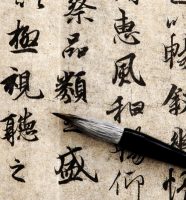 暢敘幽
惠風和暢仰
察品類之盛
極視聽之